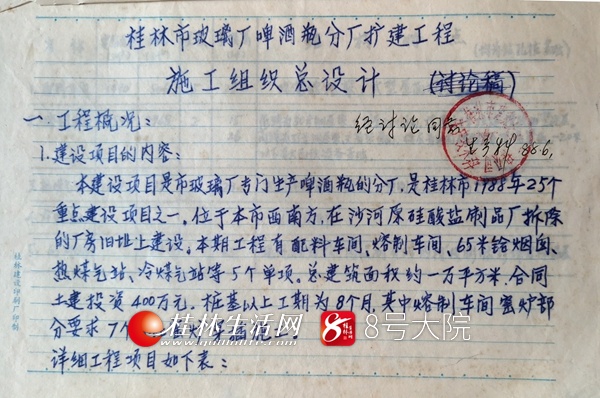 桂林市玻璃厂啤酒瓶分厂扩建工程
施工组织总设计 (讨论稿)
一.工程概况:
经讨论同意
88.6.
1.建设项目的内容:
本建设项目是市玻璃厂专门生产啤酒瓶的分厂,是桂林市1988年25个
重点建设项目之一。位于本市西南方,在沙河原硅酸盐制品厂拆除
的厂房旧址上建设。本期工程有配料车间、熔制车间、65米砼烟囱、
热煤气站、冷煤气站等5个单项。总建筑面积约一万平方米,合同
土建投资400万元。桩基以上工期为8个月,其中熔制车间窑炉部
分要求7个
详细工程项目如下表:
桂林生活网
8号大院
桂林建设印刷厂印制